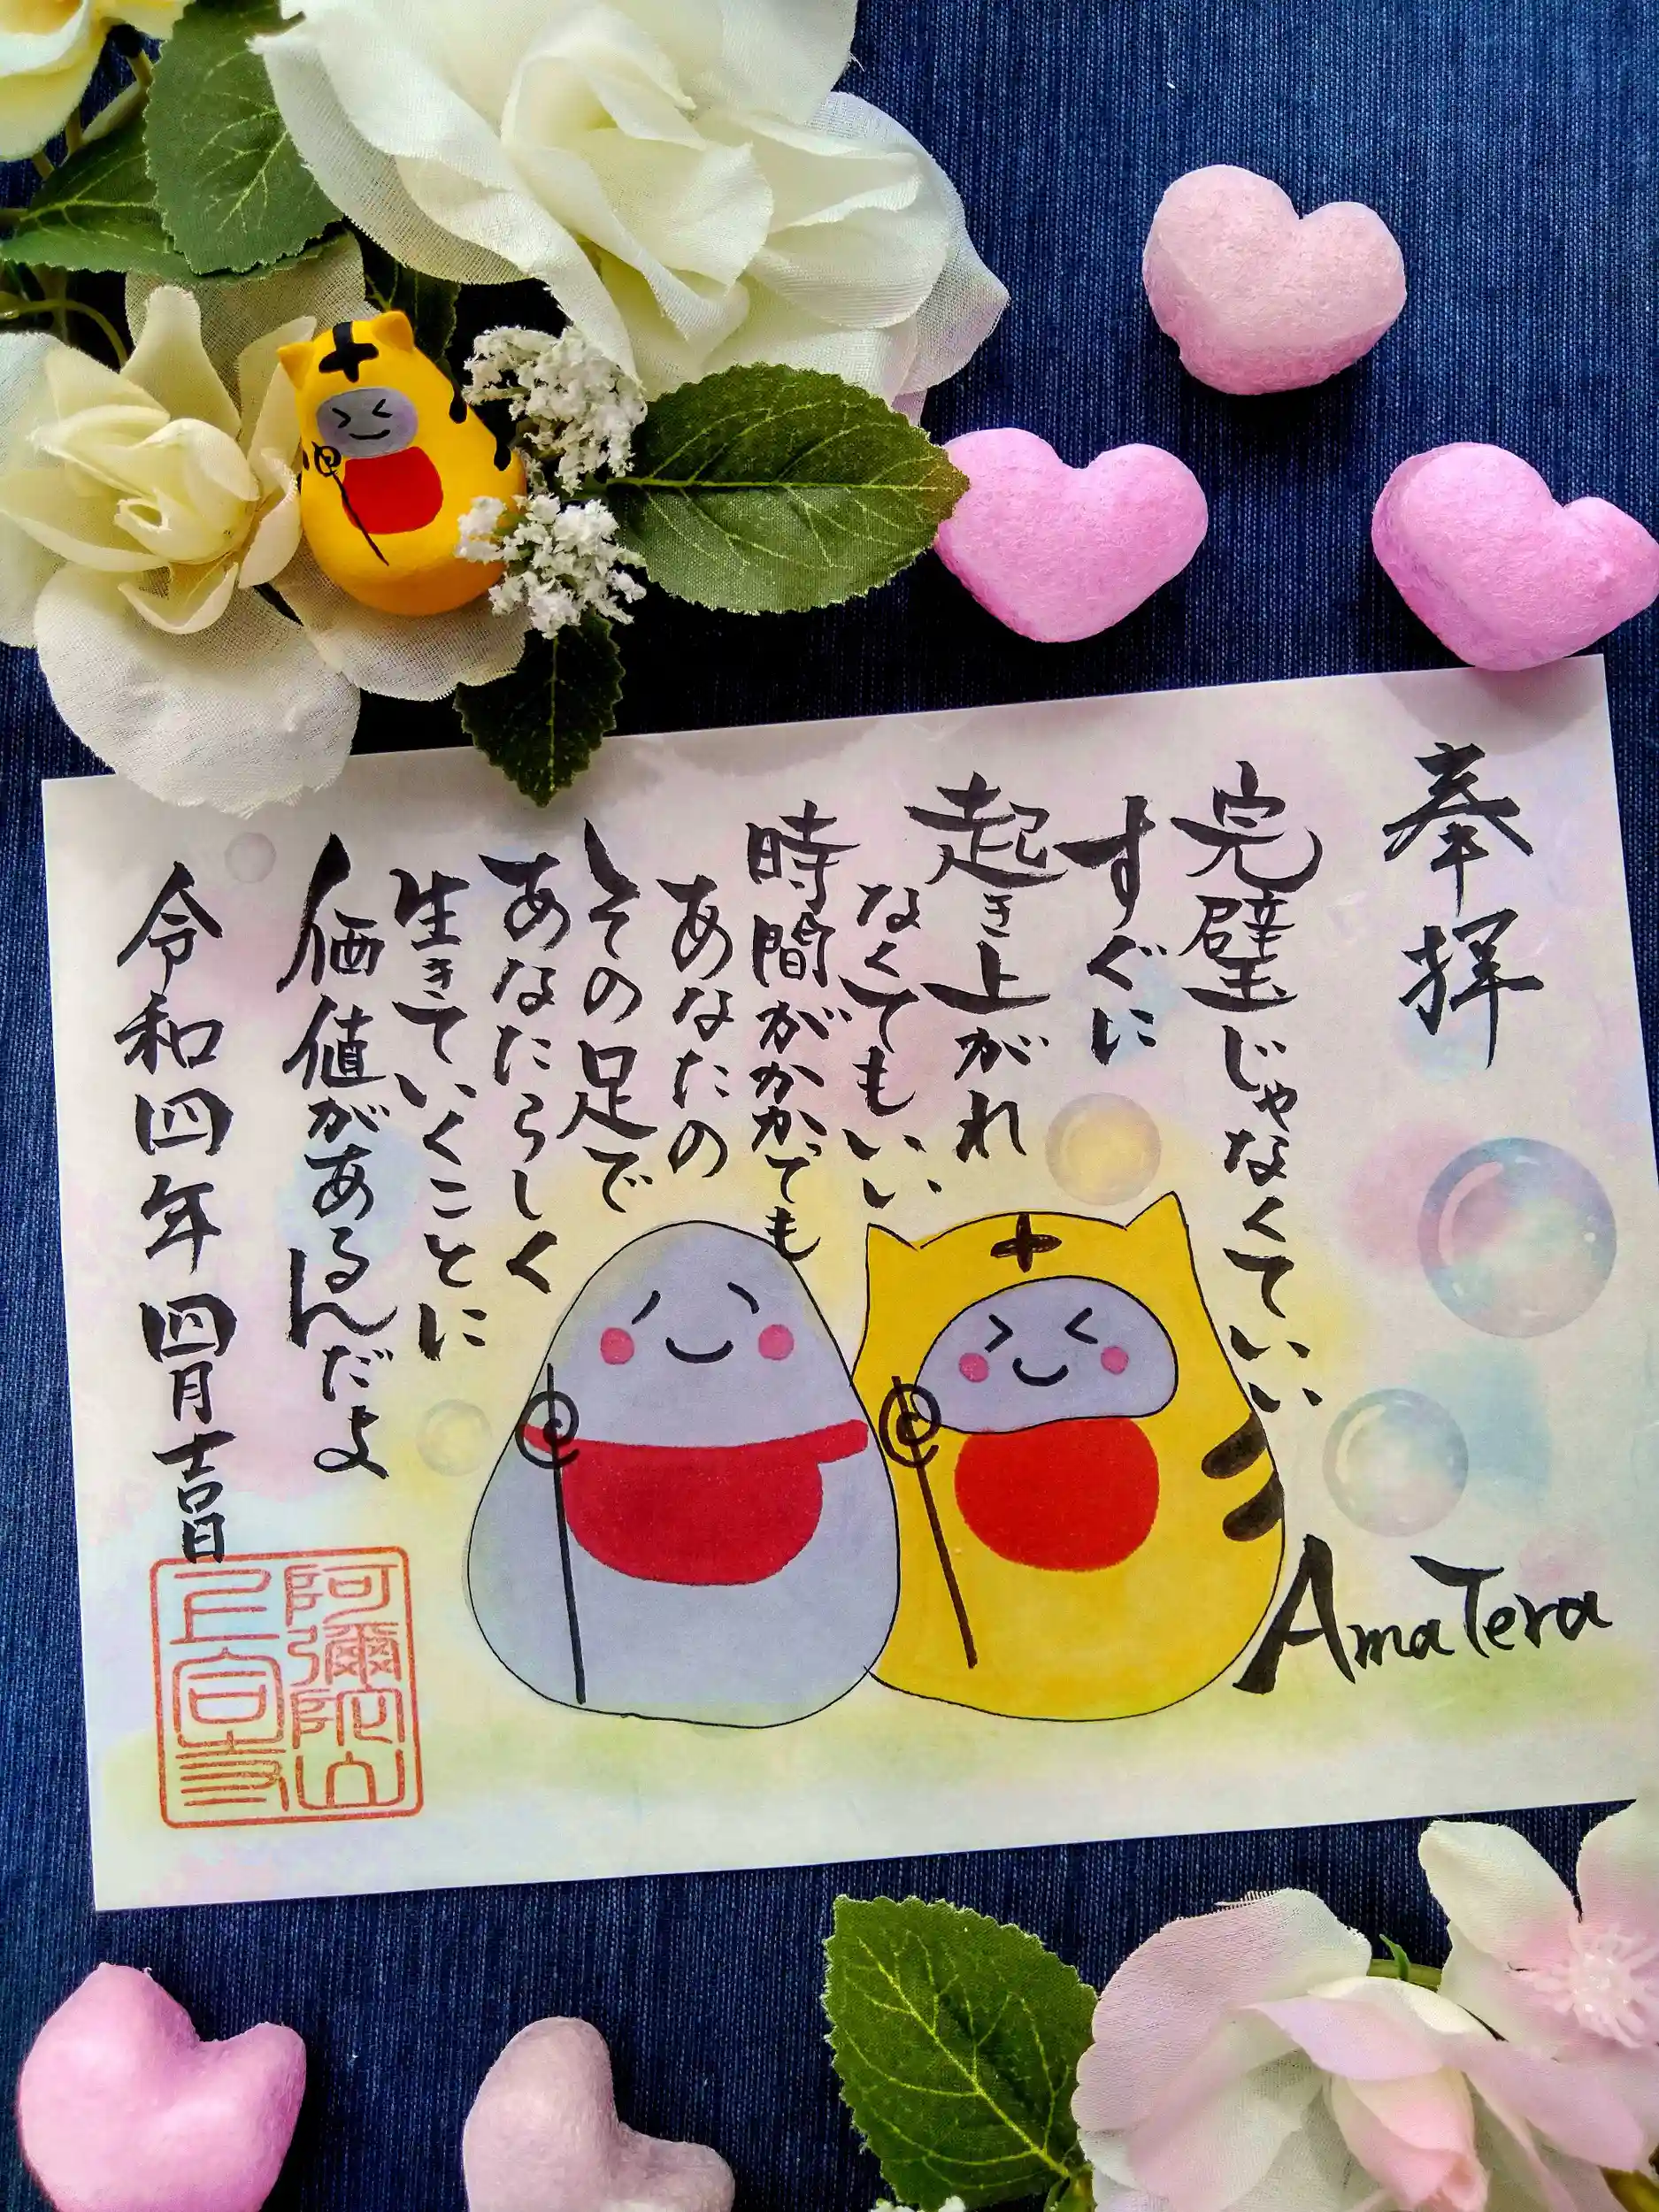 奉拝
完璧じゃなくていい
すぐに
起き上がれ
なくてもいい
時間がかかっても
あなたの
その足で
あなたらしく
生きていくことに
価値があるんだよ
令和四年四月吉日
AmaTera
阿彌陀山
上宮寺